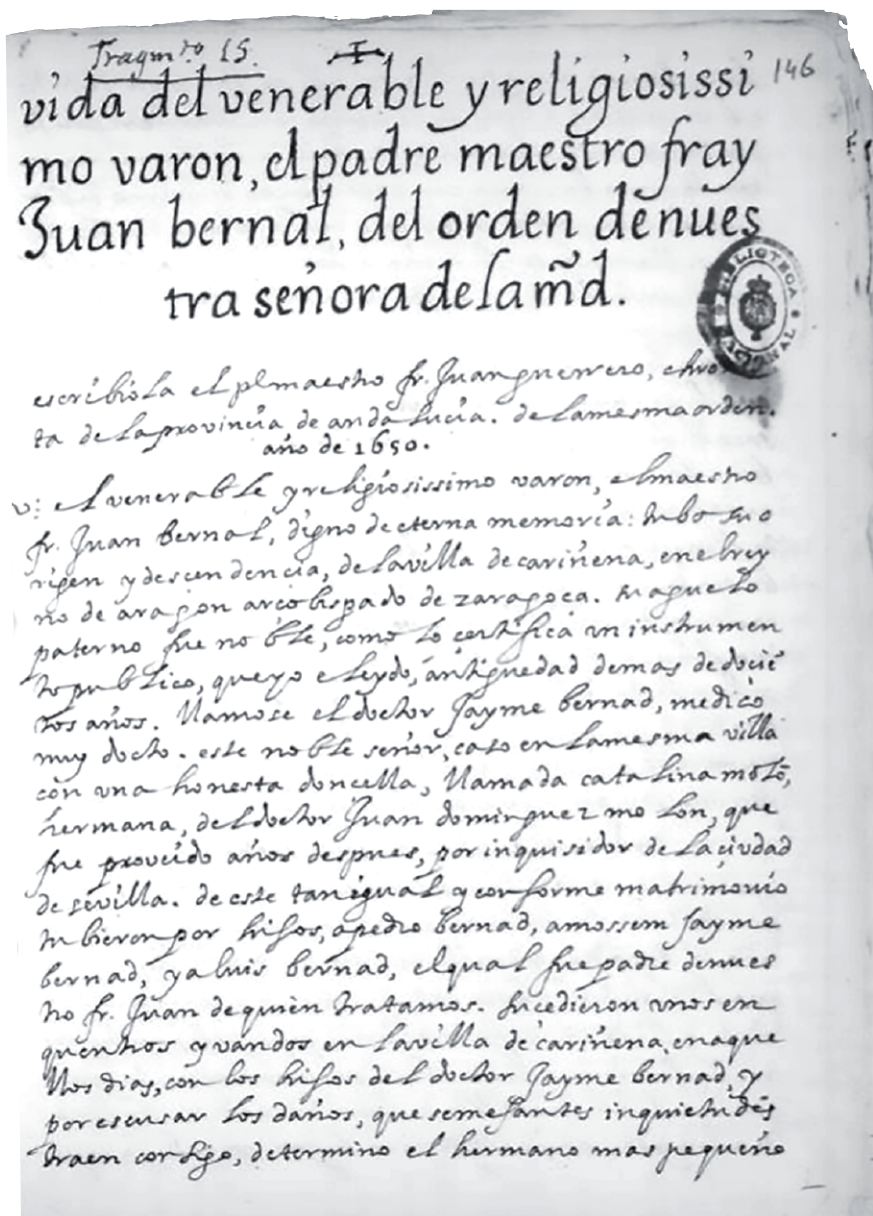 Fragm.to 15.
146
vida del venerable y religiosissi
mo varon, el padre maestro fray
Juan bernal, del orden de nues
tra señora de la md.
BIBLIOTECA NACIONAL
escribiola el pe maestro fr. Juan guerrero, chro
ta de la provincia de andalucia. de la mesma orden.
año de 1650.
el venerable y religiosissimo varon, el maestro
fr. Juan bernal, digno de eterna memoria: tubo su o
rigen y descendencia, de la villa de cariñena, en el rey
no de aragon arçobispado de zaragoça. su aguelo
paterno fue noble, como lo certifica un instrumen
to publico, que yo e leydo, antiguedad de mas de dociē
tos años. llamose el doctor Jayme bernad, medico
muy docto. este noble señor, caso en la mesma villa
con una honesta doncella, llamada catalina molō,
hermana, del doctor Juan dominguez molon, que
fue proveido años despues, por inquisidor de la ciudad
de sevilla. de este tan igual y conforme matrimonio
tubieron por hijos, a pedro bernad, a mossem Jayme
bernad, y a luis bernad, el qual fue padre de nues
tro fr. Juan de quien tratamos. sucedieron unos en
quentros y vandos en la villa de cariñena, en aque
llos dias, con los hijos del doctor Jayme bernad, y
por escusar los daños, que semejantes inquietudes
traen consigo, determino el hermano mas pequeño